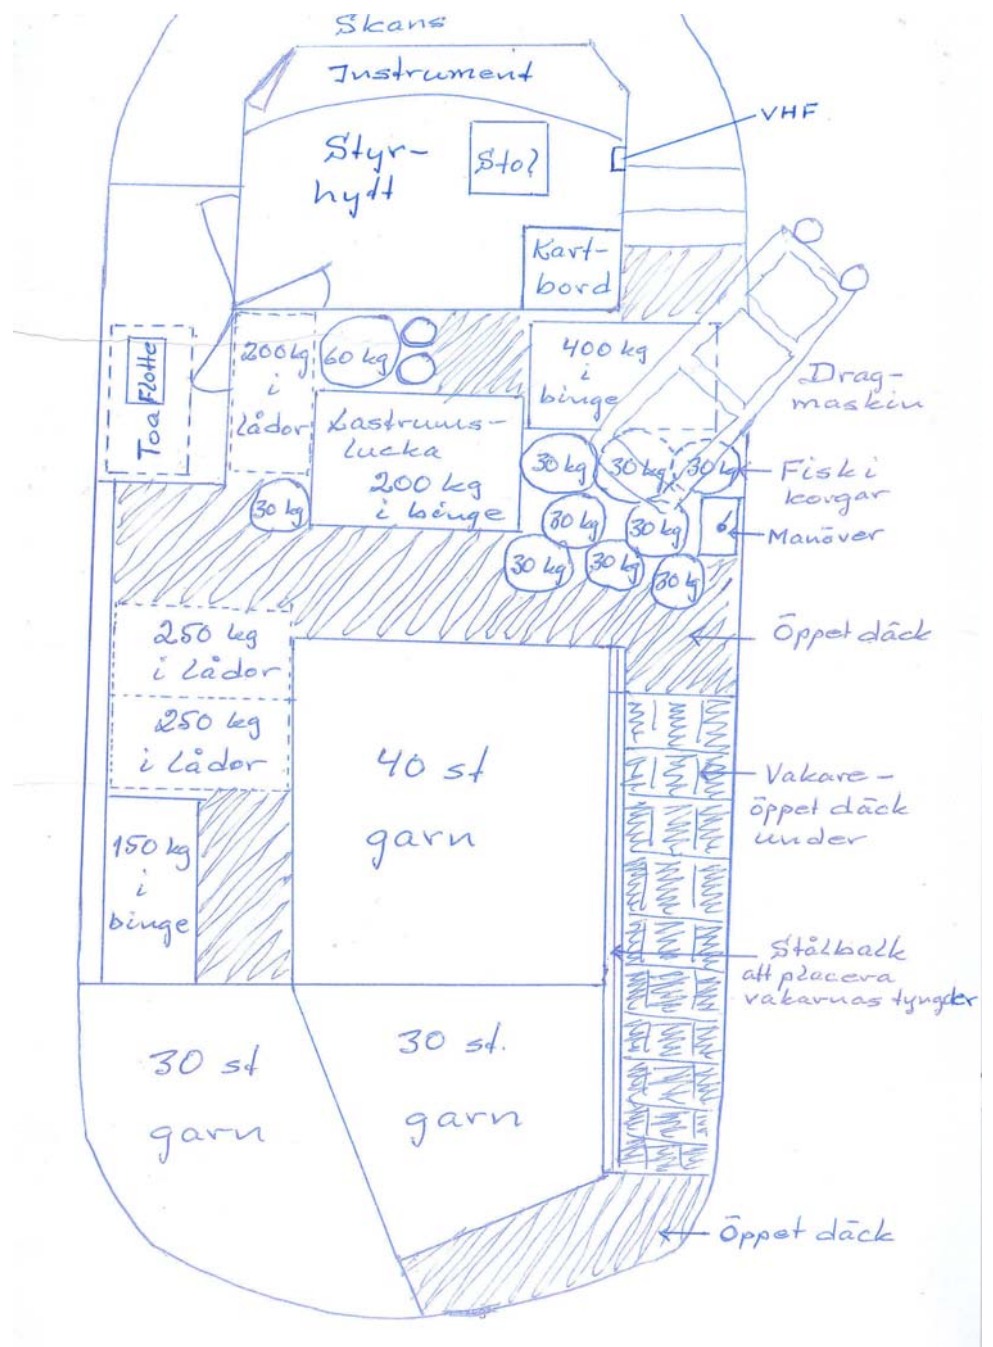 Skans
Instrument
VHF
Styr-
hytt
Stol
Kart-
bord
Toa
Flotte
200kg
i
lådor
60 kg
400 kg
i
binge
Drag-
maskin
Lastrums-
lucka
200 kg
i binge
30 kg
30 kg
30 kg
30 kg
Fisk i
korgar
30 kg
30 kg
Manöver
30 kg
30 kg
30 kg
Öppet däck
250 kg
i lådor
250 kg
i lådor
40 st
garn
Vakare -
öppet däck
under
150 kg
i
binge
Stålbalk
att placera
vakarnas tyngder
30 st
garn
30 st.
garn
Öppet däck